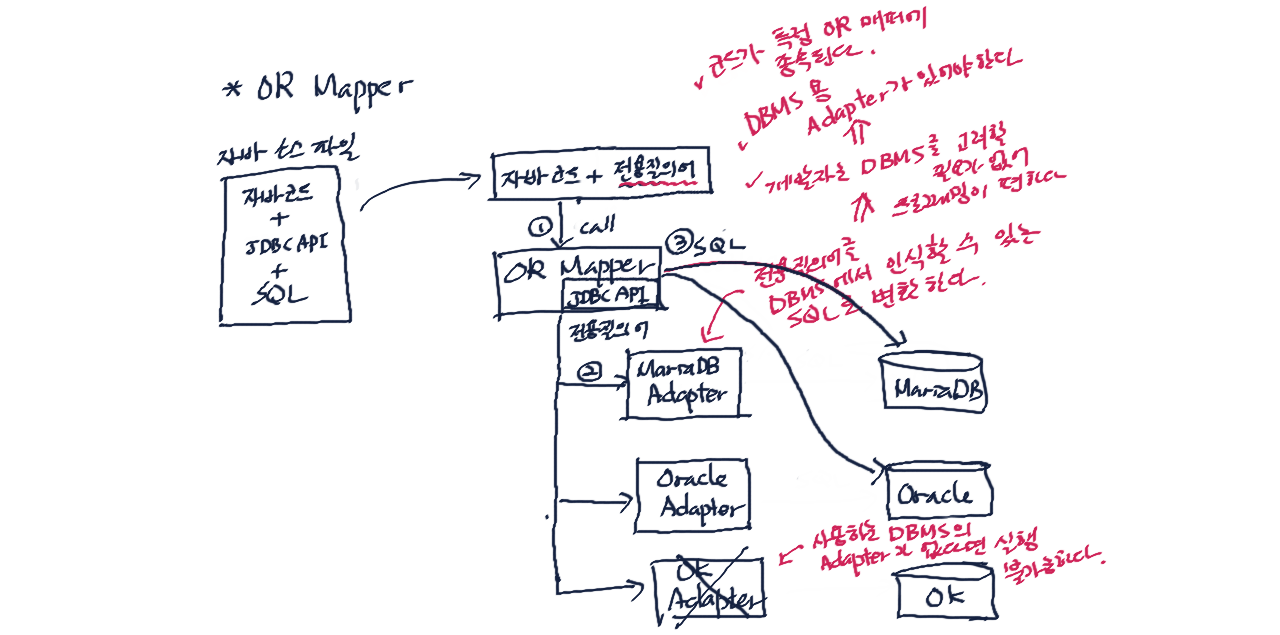 * OR Mapper
자바 소스 파일
자바코드
+
JDBC API
+
SQL
자바코드 + 전용질의어
① call
OR Mapper
JDBC API
전용질의어
②
MariaDB
Adapter
Oracle
Adapter
OK
Adapter
③ SQL
MariaDB
Oracle
OK
✓ 코드가 특정 OR 매퍼에
종속된다.
✓ DBMS 용
Adapter가 있어야 한다
✓ 개발자는 DBMS를 고려할
필요가 없어
프로그래밍이 편하다
전용질의어를
DBMS에서 인식할 수 있는
SQL로 변환한다.
사용하는 DBMS의
Adapter가 없다면 실행
불가능하다.